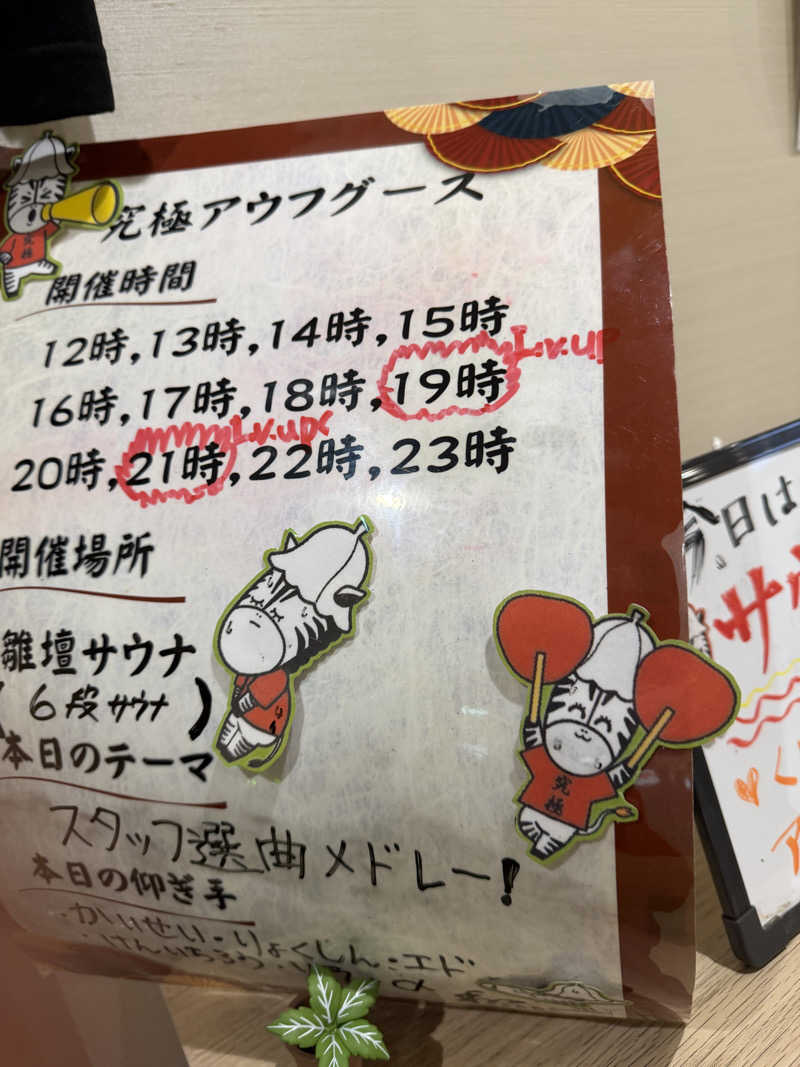 究極アウフグース
開催時間
12時,13時,14時,15時
Lv.up
16時,17時,18時,19時
Lv.up
20時,21時,22時,23時
開催場所
雛壇サウナ
(6段サウナ)
本日のテーマ
スタッフ選曲メドレー!
本日の仰ぎ手
・かいせい・りょくじん・エド
・けんいちろう
究極
究極
今日は
サ